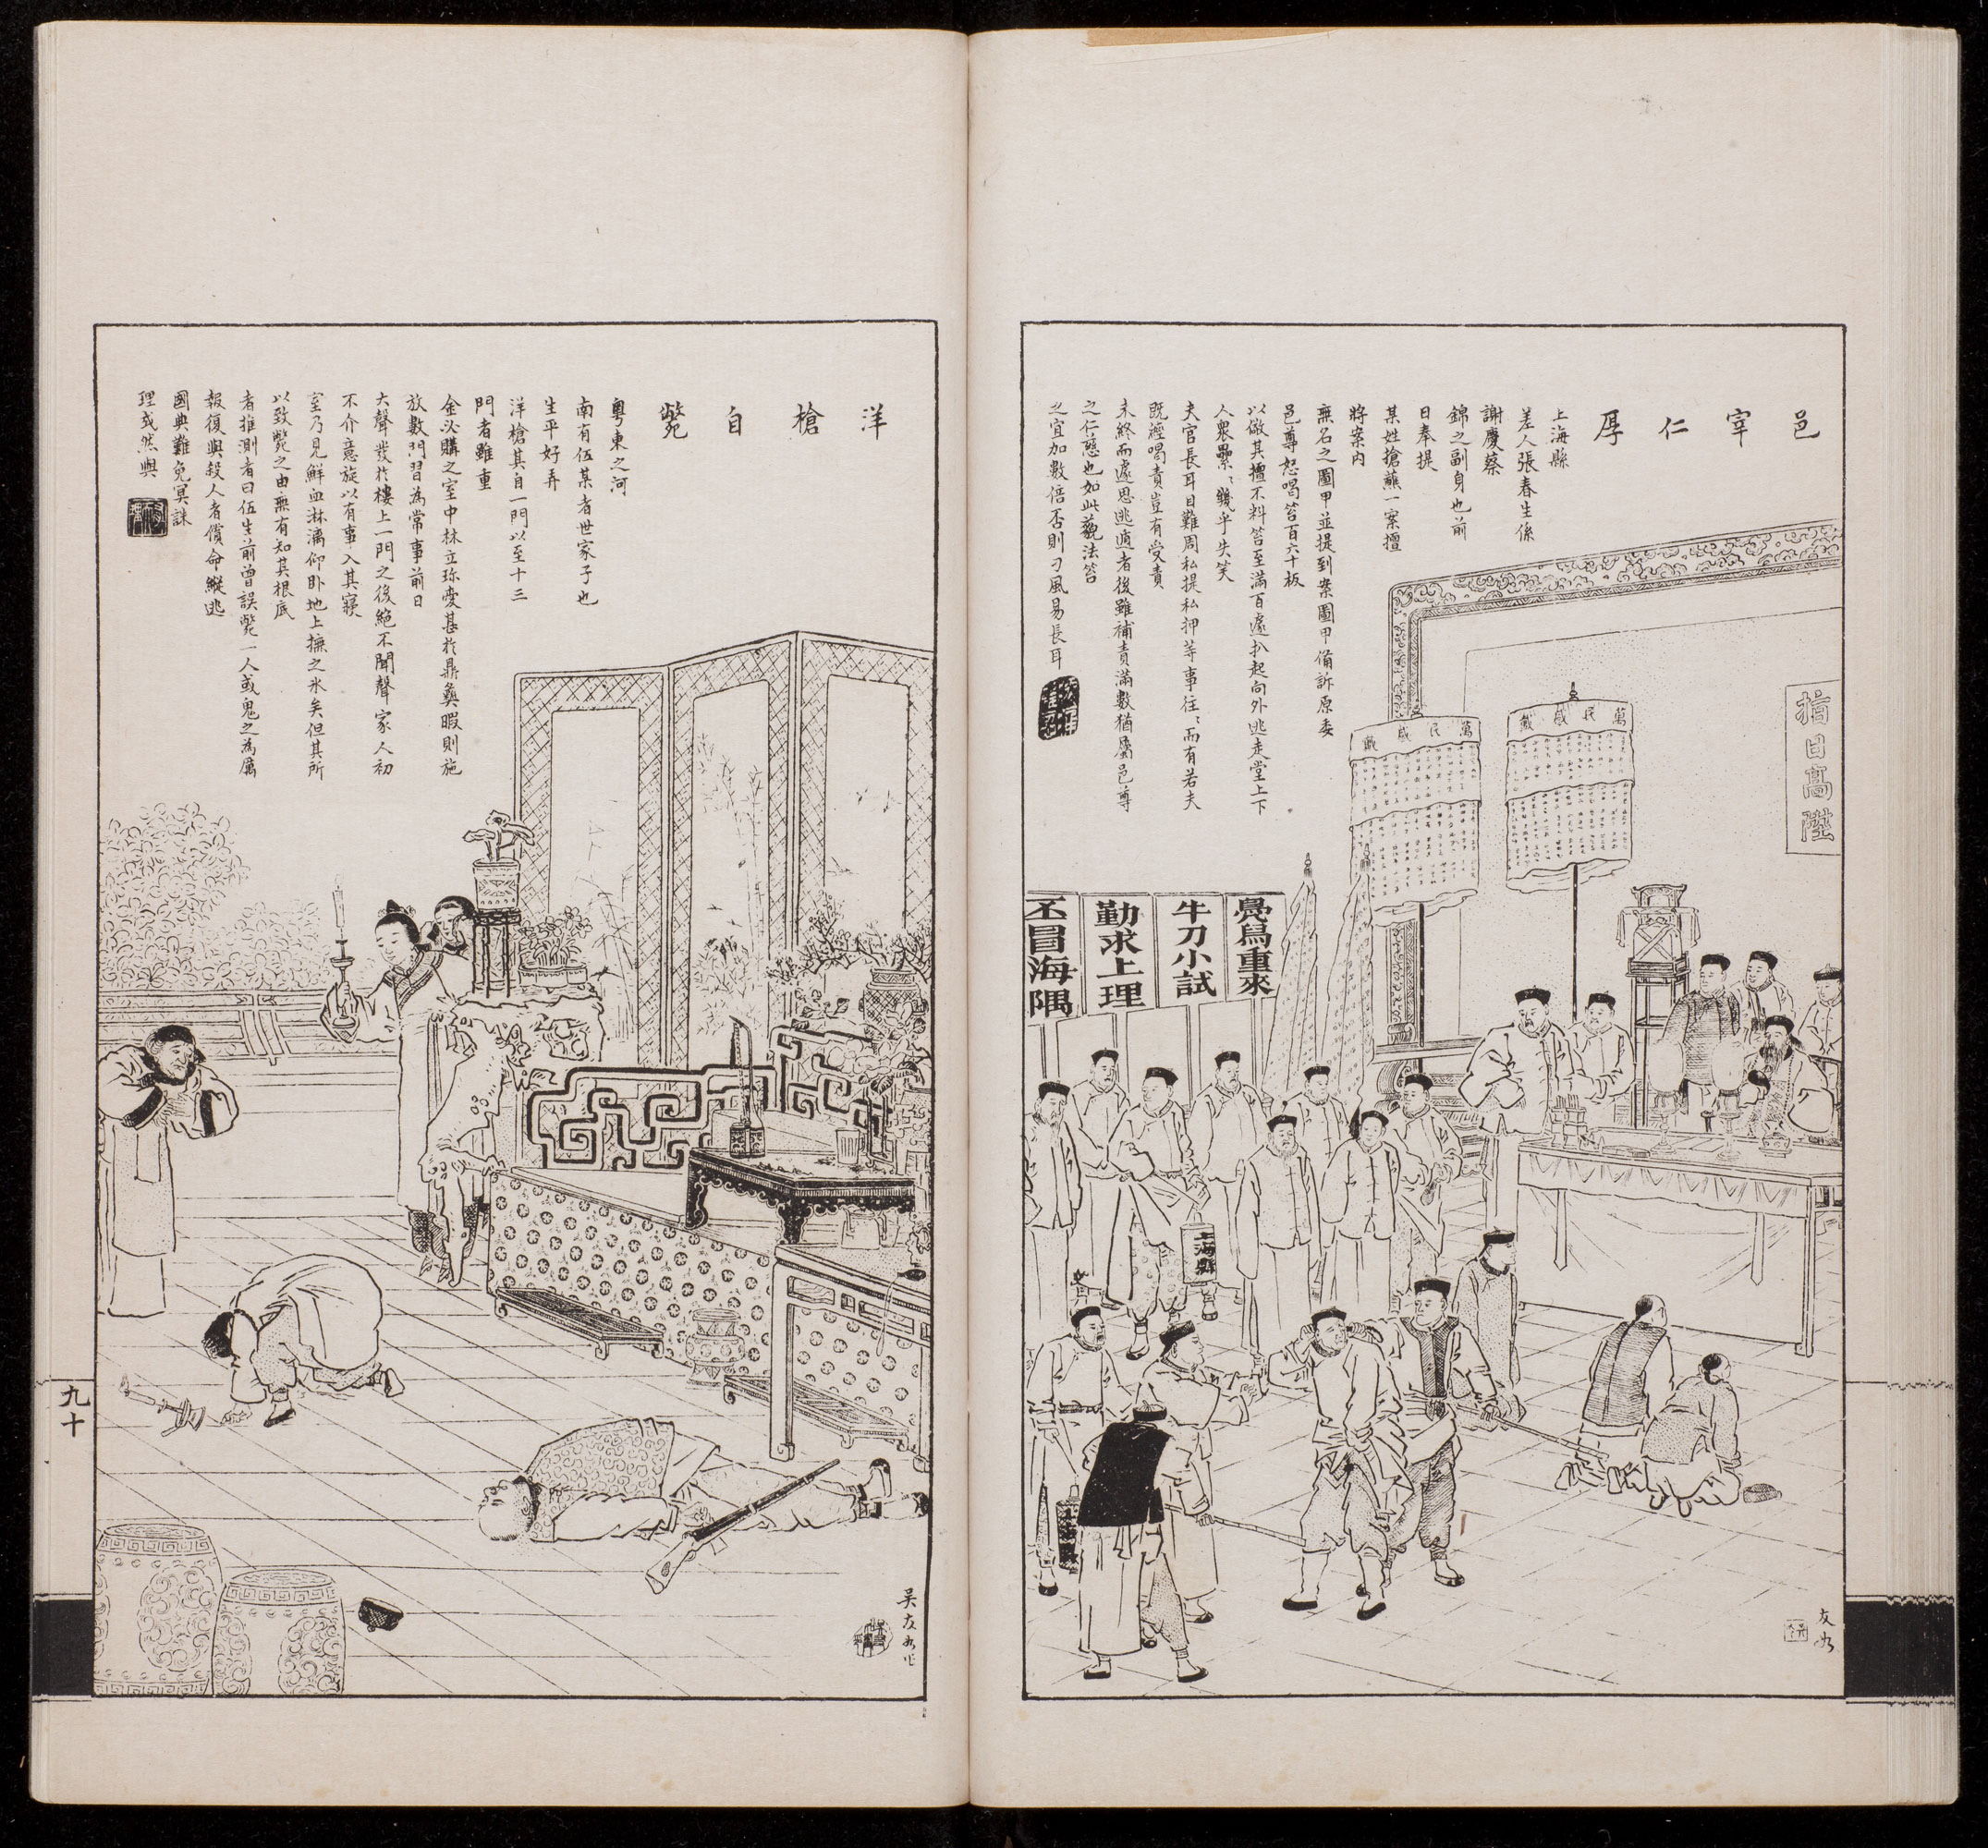 邑宰仁厚
上海縣
差人張春生係
謝慶蔡
錦之副身也前
日奉提
某姓搶蘸一案擅
將案內
無名之圖甲並提到案圖甲俻訴原委
邑尊怒喝笞百六十板
以儆其擅不料笞至滿百遽扒起向外逃走堂上下
人衆纍纍幾乎失笑
夫官長耳目難周私提私押等事往往而有若夫
既經喝責豈有受責
未終而遽思逃遁者後雖補責滿數猶屬邑尊
之仁慈也如此藐法笞
之宜加數倍否則刁風易長耳
指日高陞
萬民感戴
萬民感戴
鳧舄重來
牛刀小試
勤求上理
丕冒海隅
上海縣
友如
洋槍自斃
粵東之河
南有伍某者世家子也
生平好弄
洋槍其自一門以至十三
門者雖重
金必購之室中林立珍愛甚於鼎彝暇則施
放數門習為常事前日
大聲發於樓上一門之後絕不聞聲家人初
不介意旋以有事入其寢
室乃見鮮血淋漓仰卧地上撫之氷矣但其所
以致斃之由無有知其根底
者推測者曰伍生前曾誤斃一人或鬼之為厲
報復與殺人者償命縱逃
國典難免冥誅
理或然與
吴友如作
九十